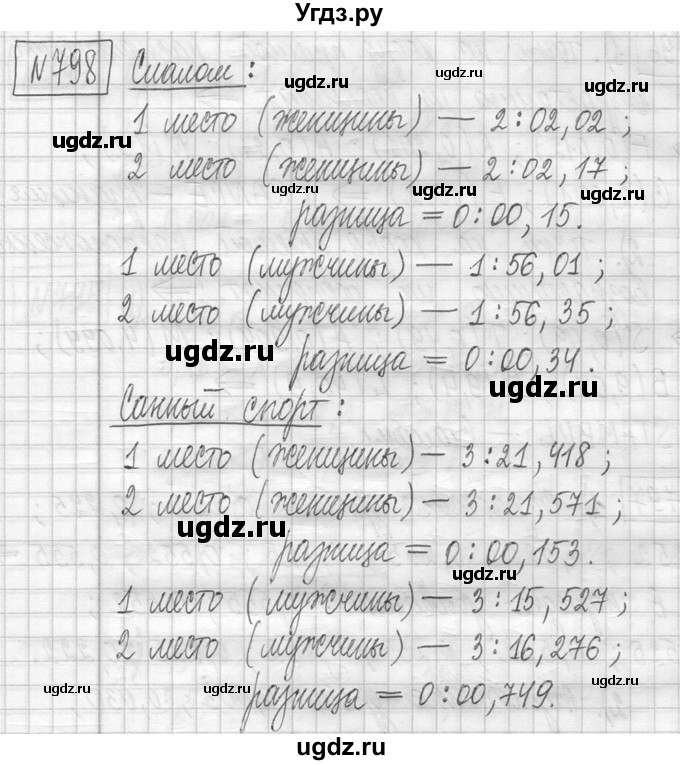 Угдз.ру
№798 Слалом :
ugdz.ru ugdz.ru
1 место (женщины) — 2:02,02 ;
ugdz.ru ugdz.ru
2 место (женщины) — 2:02,17 ;
ugdz.ru ugdz.ru ugdz.ru
разница = 0:00,15.
1 место (мужчины) — 1:56,01 ;
2 место (мужчины) — 1:56,35 ;
ugdz.ru
разница = 0:00,34.
ugdz.ru
Санный спорт :
1 место (женщины) — 3:21,418 ;
2 место (женщины) — 3:21,571 ;
ugdz.ru
разница = 0:00,153.
ugdz.ru
1 место (мужчины) — 3:15,527 ;
2 место (мужчины) — 3:16,276 ;
ugdz.ru ugdz.ru ugdz.ru
разница = 0:00,749.
ugdz.ru